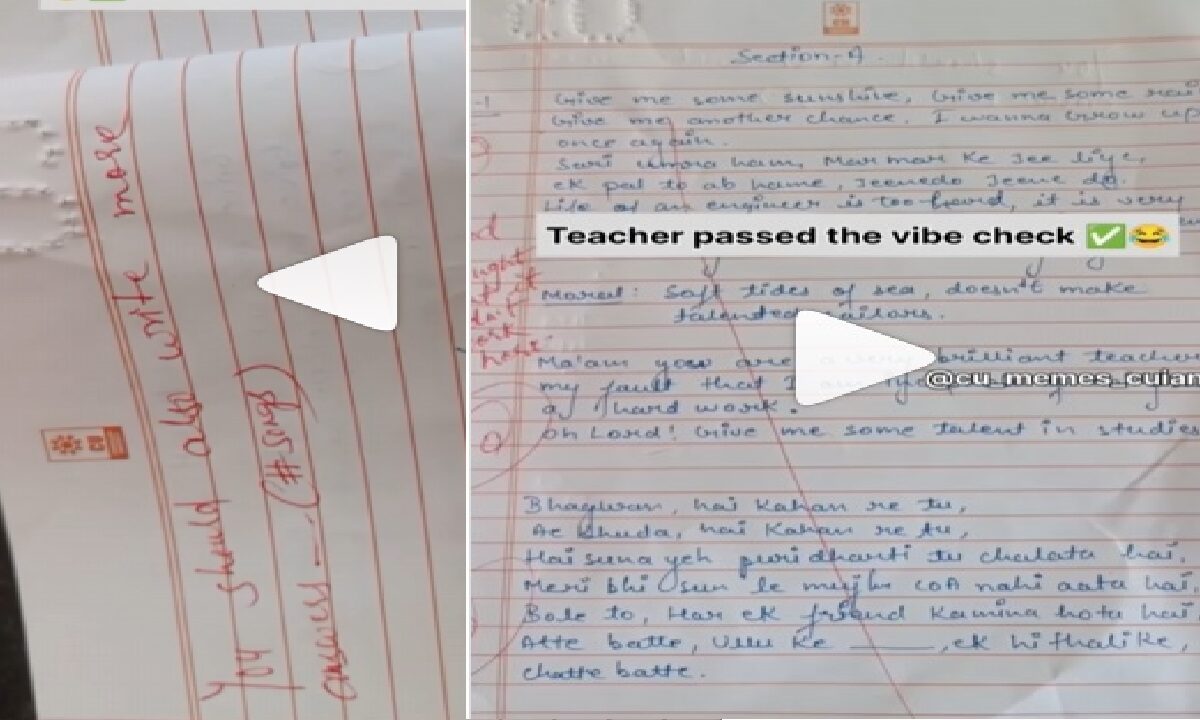 You should also write more
answers --- (# songs)
Section-A
Give me some sunshine, Give me some rai
Give me another chance, I wanna Grow up
once again.
Sari umra ham, Mar mar ke Jee liye,
ek pal to ab hame, Jeenedo Jeene do.
Life of an engineer is too hard, it is very
Teacher passed the vibe check ✅😂
Moral: Soft tides of sea, doesn't make
talented sailors.
Ma'am you are a very brilliant teacher
my fault that I
@cu_memes_cuian
of hard work.
Oh Lord! Give me some talent in studies
0
Bhagwan, hai Kahan re tu,
Ae Khuda, hai Kahan re tu,
Hai suna yeh puri dharti tu chalata hai,
Meri bhi sun le mujhe COA nahi aata hai,
Bole to, Har ek friend Kamina hota hai
Atte batte, Ullu Ke ____, ek hi thali ke,
chatte batte.